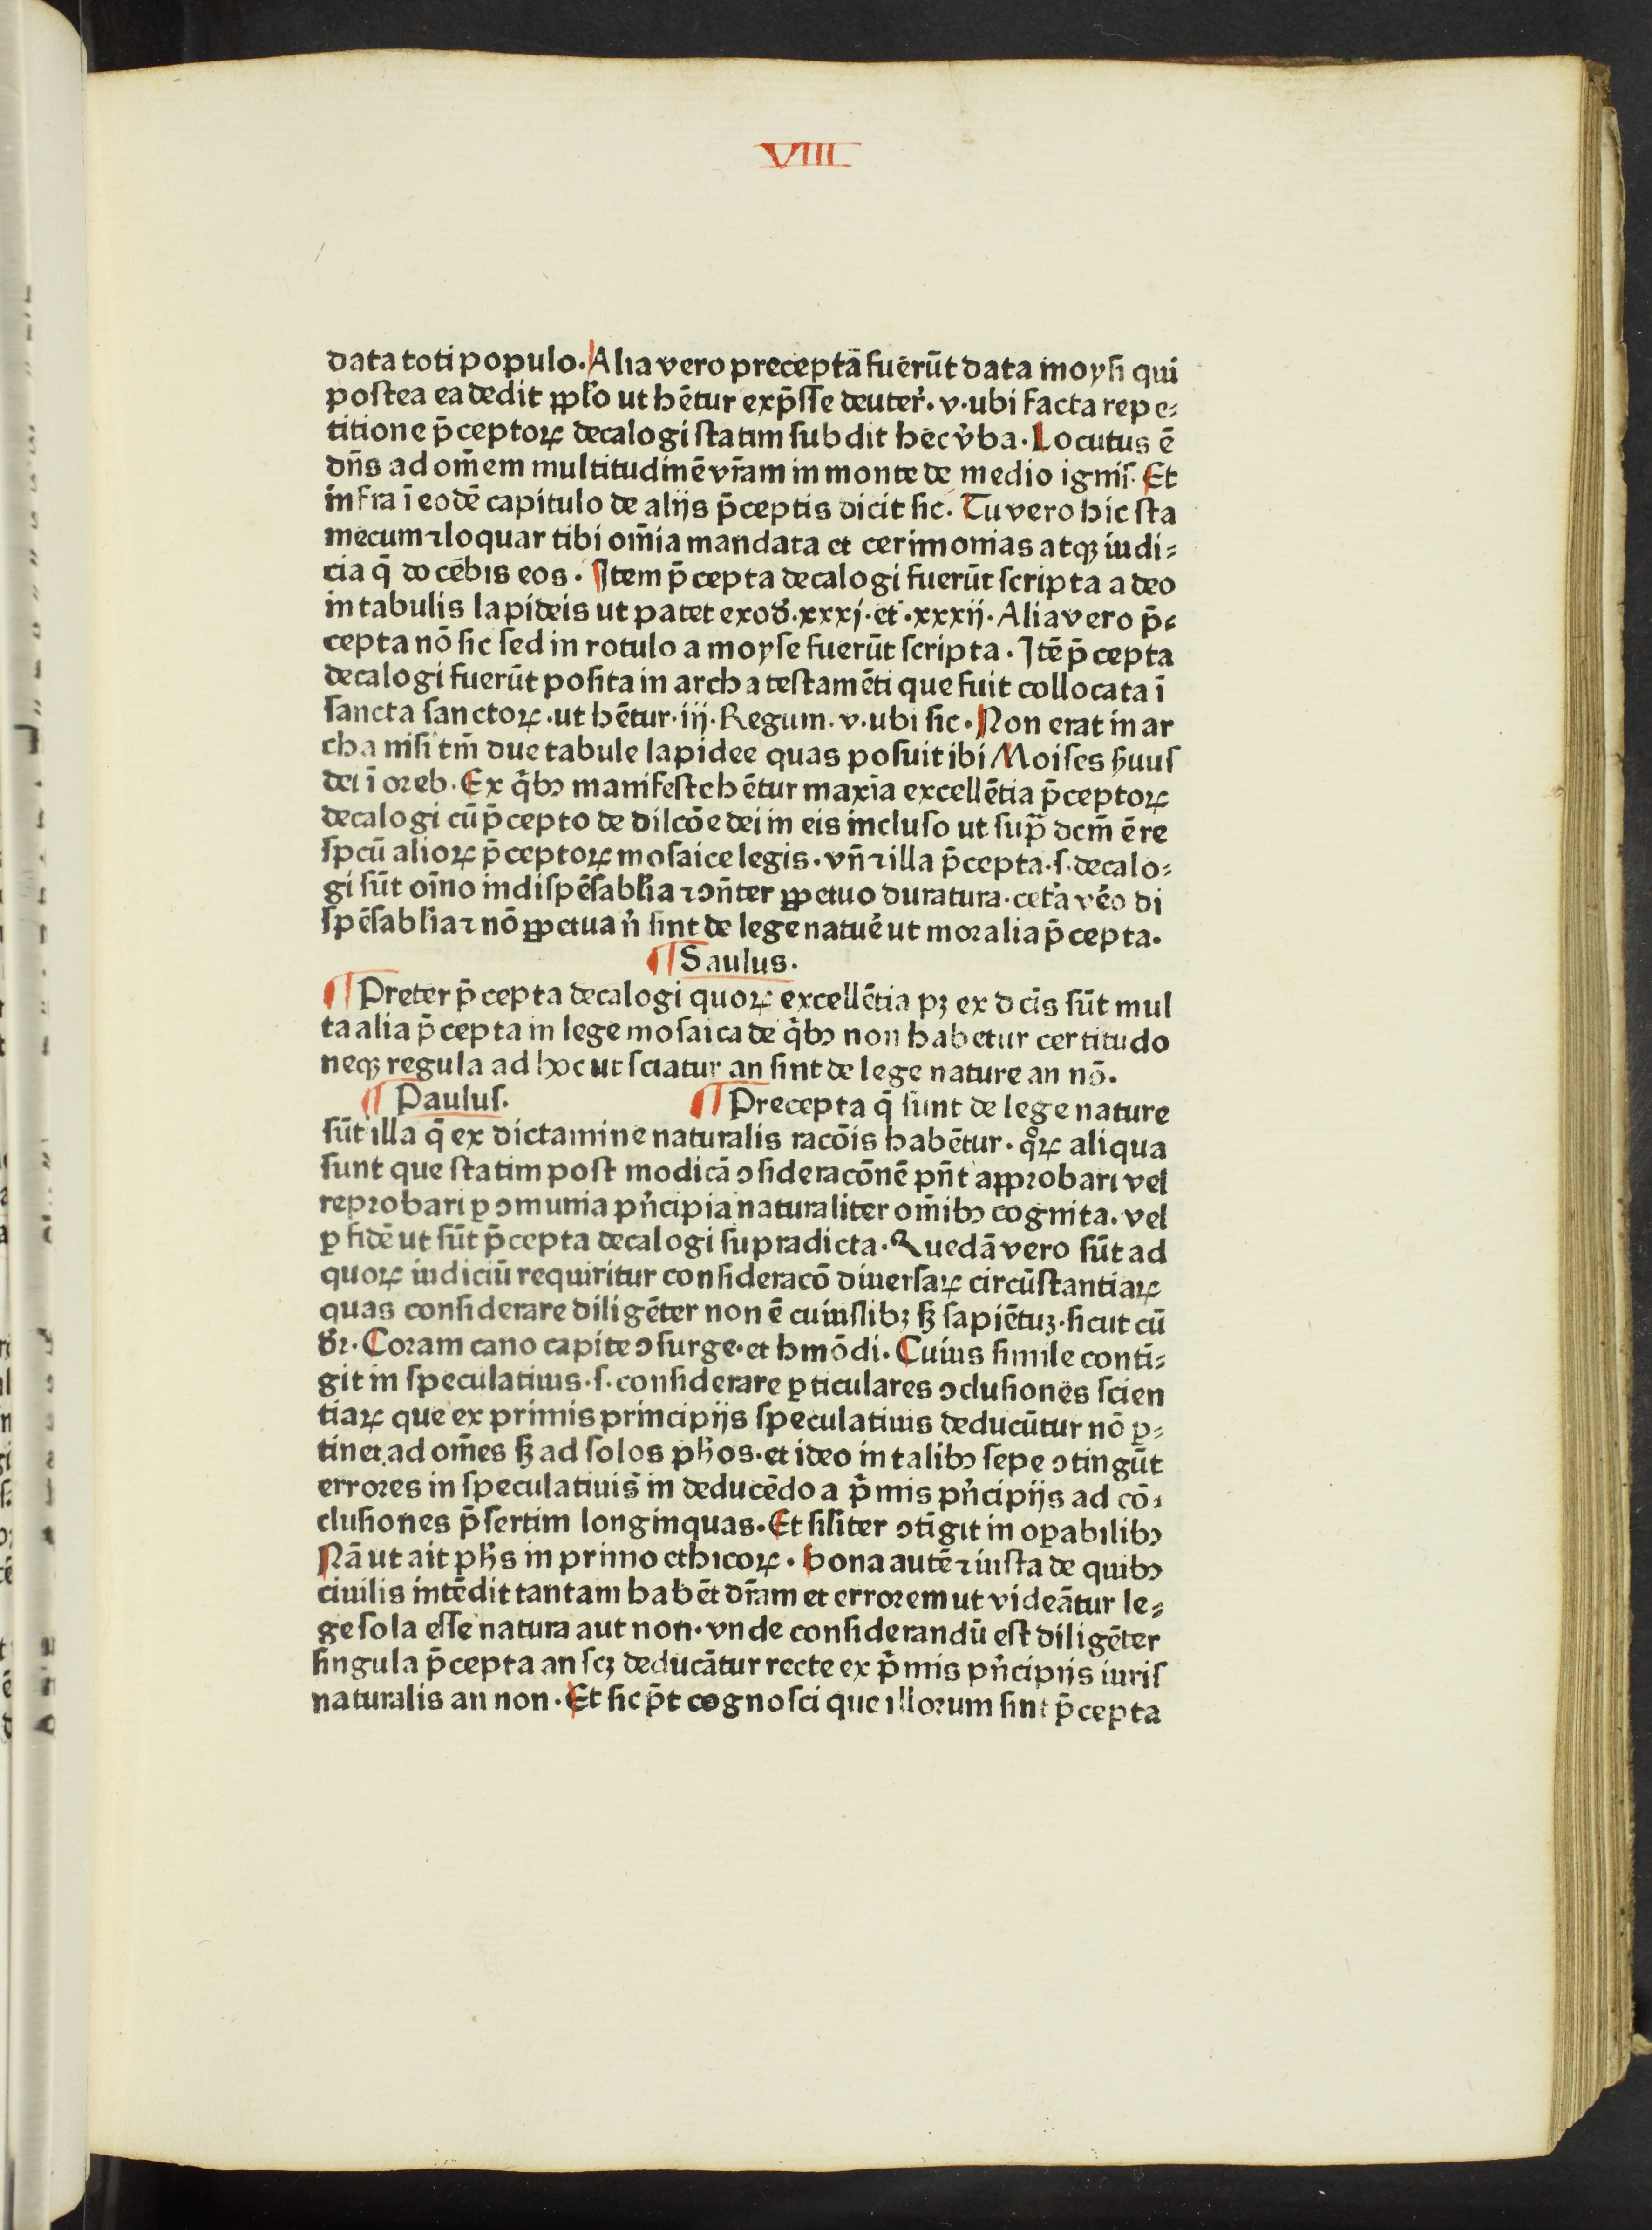 VIII
data toti populo. Alia vero precepta fuerūt data moysi qui
postea ea dedit ꝑpl̄o ut hētur exp̄sse deuter̉. v. ubi facta repe⸗
titione p̄ceptoꝝ decalogi statim subdit hec v̉ba. Locutus ē
dn̄s ad om̄em multitudinē vr̄am in monte de medio ignis. Et
infra ī eodē capitulo de alijs p̄ceptis dicit sic. Tu vero hic sta
mecum ⁊ loquar tibi om̄ia mandata et cerimonias atqꝫ iudi⸗
cia q̄ docebis eos. Item p̄cepta decalogi fuerūt scripta a deo
in tabulis lapideis ut patet exod̉. xxxj. et. xxxij. Alia vero p̄⸗
cepta nō sic sed in rotulo a moyse fuerūt scripta. Itē p̄cepta
decalogi fuerūt posita in archa testamēti que fuit collocata ī
sancta sanctoꝝ. ut hētur. iij. Regum. v. ubi sic. Non erat in ar
cha nisi tm̄ due tabule lapidee quas posuit ibi Moises ẜuus
dei ī oreb. Ex q̉bꝯ manifeste hētur maxīa excellētia p̄ceptoꝝ
decalogi cū p̄cepto de dilcōe dei in eis incluso ut sup̄ dcm̄ ē re
spcū alioꝝ p̄ceptoꝝ mosaice legis. vn̄ ⁊ illa p̄cepta. s. decalo⸗
gi sūt oīno indispēsabl̄ia ⁊ ꝯn̄ter ꝑpetuo duratura. cet̉a v̉o di
spēsabl̄ia ⁊ nō ꝑpetua n̉ sint de lege natuẻ ut moralia p̄cepta.
¶ Saulus.
¶ Preter p̄cepta decalogi quoꝝ excellētia pꝫ ex dcīs sūt mul
ta alia p̄cepta in lege mosaica de q̉bꝯ non habetur certitudo
neqꝫ regula ad hoc ut sciatur an sint de lege nature an nō.
¶ Paulus. ¶ Precepta q̄ sunt de lege nature
sūt illa q̄ ex dictamine naturalis racōis habētur. qͦꝝ aliqua
sunt que statim post modicā ꝯsideracōnē pn̄t approbari vel
reprobari ꝑ ꝯmunia pn̉cipia naturaliter om̄ibꝯ cognita. vel
ꝑ fidē ut sūt p̄cepta decalogi supradicta. Quedā vero sūt ad
quoꝝ iudiciū requiritur consideracō diuersaꝝ circūstantiaꝝ
quas considerare diligēter non ē cuiuslibꝫ sꝫ sapiētuꝫ. sicut cū
dr̉. Coram cano capite ꝯsurge. et hmōdi. Cuius simile conti⸗
git in speculatiuis. s. considerare ꝑticulares ꝯclusiones scien
tiaꝝ que ex primis principijs speculatiuis deducūtur nō ꝑ⸗
tinet ad om̄es sꝫ ad solos ph̄os. et ideo in talibꝯ sepe ꝯtingūt
errores in speculatiuis in deducēdo a p̉mis pn̉cipijs ad cō⸗
clusiones p̄sertim longinquas. Et sil̄iter ꝯtīgit in oꝑabilibꝯ
Nā ut ait ph̄s in primo ethicoꝝ. bona autē ⁊ iusta de quibꝯ
ciuilis intēdit tantam habēt dr̄am et errorem ut videātur le⸗
ge sola esse natura aut non. vnde considerandū est diligēter
singula p̄cepta an scꝫ deducātur recte ex p̉mis pn̉cipijs iuris
naturalis an non. Et sic p̄t cognosci que illorum sint p̄cepta